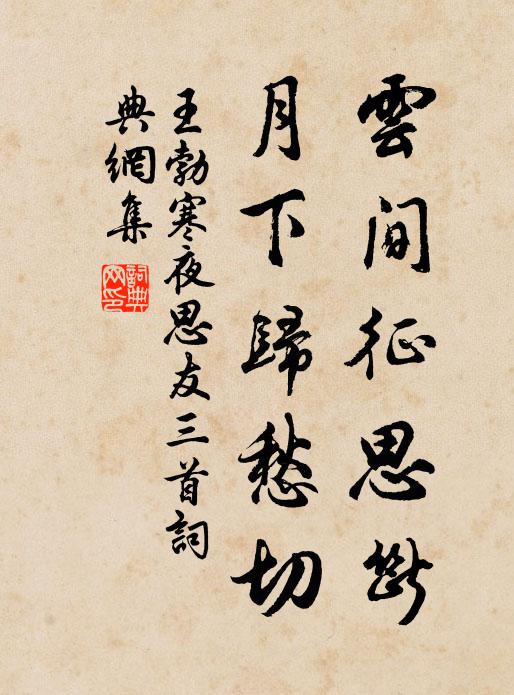 雲間征思斷
月下歸愁切
王勃寒夜思友三首詞
典網集
詞典
网印